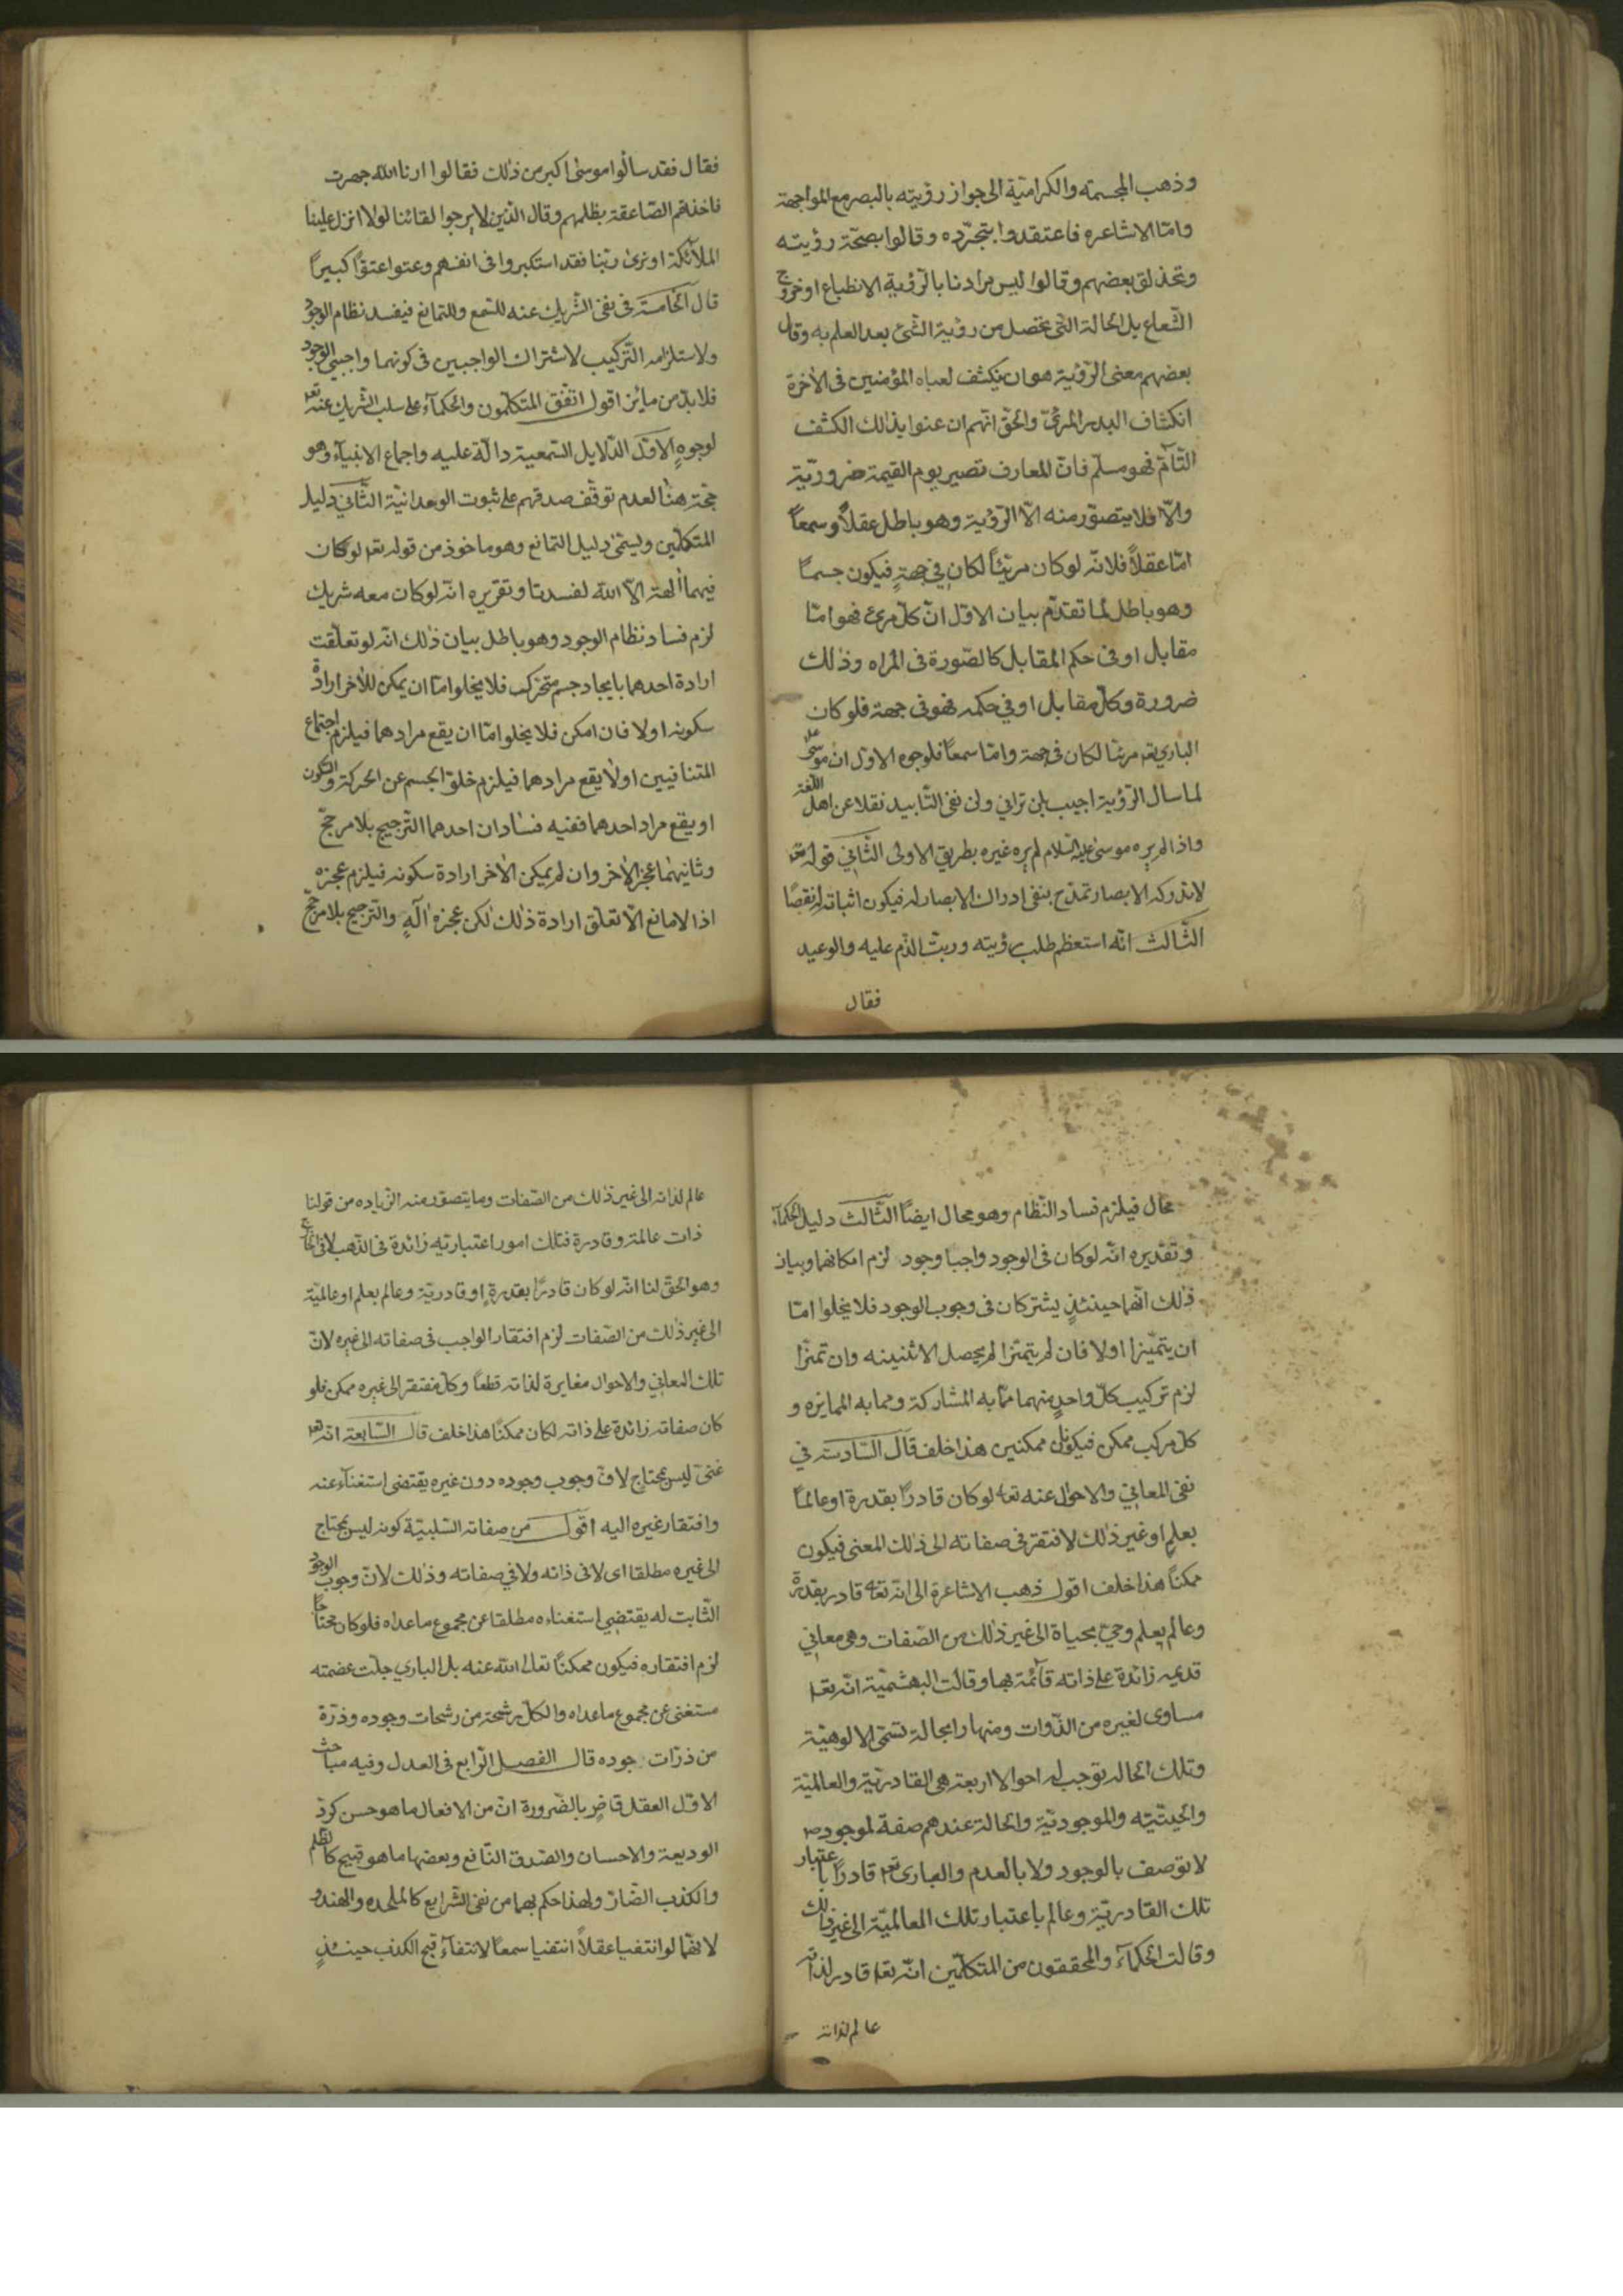 وذهب المجسمه والكرامية الى جواز رؤيته بالبصر مع المواجهة
وامّا الاشاعره فاعتقدوا بتجرّده وقالوا بصحّة رؤيته
وتحذلق بعضهم وقالوا ليس مرادنا بالرّؤية الانطباع او خروج
الشّعاع بل الحالة التّى تحصل من رؤية الشّئ بعد العلم به وقال
بعضهم معنى الرّؤية هو ان ينكشف لعباه المؤمنين فى الآخرة
انكشاف البدر المرئىّ والحقّ انّهم ان عنوا بذلك الكشف
التّامّ فهو مسلّم فانّ المعارف تصير يوم القيمة ضروريّة
والّا فلا يتصوّر منه الّا الرّؤية وهو باطل عقلاً وسمعاً
امّا عقلاً فلانّه لو كان مرئيّاً لكان في جهةٍ فيكون جسماً
وهو باطل لما تقدّم بيان الاوّل انّ كلّ مرئ فهو امّا
مقابل او فى حكم المقابل كالصّورة فى المراه وذلك
ضرورة وكلّ مقابل او في حكمه فهو فى جهة فلو كان
الباري تعه مرئيّا لكان فى جهة وامّا سمعاً فلوجوه الاوّل انّ موسى عل
لما سال الرّؤية اجيب بلن تراني ولن نفى التّابيد نقلا عن اهل اللّغة
واذا لم يره موسى عليه السّلام لم يره غيره بطريق الاولى الثّاني قوله تعه
لا تدركه الابصار تمدّح بنفى ادراك الابصار له فيكون اثباته له نقصًا
الثّالث انّه استعظم طلب رؤيته ورتّب الذّم عليه والوعيد
فقال
فقال فقد سالوا موسى اكبر من ذلك فقالوا ارنا الله جهرت
فاخذتهم الصّاعقة بظلمهم وقال الّذين لا يرجوا لقائنا لولا انزل علينا
الملآئكة او نرى ربّنا فقد استكبروا فى انفسهم وعتوا عتوّاً كبيراً
قال الخامسة فى نفى الشّريك عنه للسّمع وللتمانع فيفسد نظام الوجود
ولاستلزامه التّركيب لاشتراك الواجبين فى كونهما واجبي الوجود
فلا بدّ من مائز اقول اتّفق المتكلّمون والحكمآء على سلب الشّريك عنه تعه
لوجوهٍ الاوّل الدّلايل السّمعية دالّة عليه واجماع الانبيآء وهو
حجّة هنا لعدم توقّف صدقهم على ثبوت الوحدانيّة الثّاني دليل
المتكلّمين ويسمّى دليل التمانع وهو ماخوذ من قوله تعه لو كان
فيهما آلهة الّا الله لفسدتا وتقريره انّه لو كان معه شريك
لزم فساد نظام الوجود وهو باطل بيان ذلك انّه لو تعلّقت
ارادة احدهما بايجاد جسم متحرّك فلا يخلوا امّا ان يمكن للآخر ارادة
سكونه اولا فان امكن فلا يخلوا امّا ان يقع مرادهما فيلزم اجتماع
المتنافيين اولا يقع مرادهما فيلزم خلوّ الجسم عن الحركة والسّكون
او يقع مراد احدهما ففيه فسادان احدهما التّرجيح بلا مرجّح
وثانيهما عجز الآخر وان لم يمكن الآخر ارادة سكونه فيلزم عجزه
اذا لا مانع الّا تعلّق ارادة ذلك لكن عجزه الٓهٍ والتّرجيح بلا مرجّح
محال فيلزم فساد النّظام وهو محال ايضاً الثّالث دليل الحكمآء
وتقديره انّه لو كان فى الوجود واجبا وجود لزم امكانهما وبيان
ذلك انّهما حينئذٍ يشتركان فى وجوب الوجود فلا يخلوا امّا
ان يتميّزا اولا فان لم يتميّزا لم يحصل الاثنينه وان تميّزا
لزم تركيب كلّ واحدٍ منهما ممّا به المشاركة ومما به الممايزه و
كلّ مركّب ممكن فيكونان ممكنين هذا خلف قال السّادسة في
نفى المعاني والاحوال عنه تعه لو كان قادراً بقدرة او عالماً
بعلمٍ او غير ذلك لافتقر فى صفاته الى ذلك المعنى فيكون
ممكناً هذا خلف اقول ذهب الاشاعرة الى انّه تعه قادر بقدرة
وعالم بعلم وحيّ بحياة الى غير ذلك من الصّفات وهى معاني
قديمه زائدة على ذاته قآئمة بها وقالت البهشميّة انّه تعه
مساوى لغيره من الذّوات ومنها را بحالة تسمّى الالوهيّة
وتلك الحاله توجب له احوالا اربعة هى القادريّة والعالميّة
والحيثيّته والموجوديّة والحالة عندهم صفة لموجود
لا توصف بالوجود ولا بالعدم والبارى تعه قادراً باعتبار
تلك القادريّة وعالم باعتبار تلك العالميّة الى غير ذلك
وقالت الحكمآء والمحققون من المتكلّمين انّه تعه قادر لذاته
عالم لذاته
عالم لذاته الى غير ذلك من الصّفات وما يتصوّر منه الزّياده من قولنا
ذات عالمة وقادرة فتلك امور اعتباريّة زائدة فى الذّهب لا فى الخارج
وهو الحقّ لنا انّه لو كان قادرًا بقدرةٍ او قادريّة وعالم بعلم او عالميّة
الى غير ذلك من الصّفات لزم افتقار الواجب فى صفاته الى غيره لانّ
تلك المعاني والاحوال مغايرة لذاته قطعاً وكلّ مفتقر الى غيره ممكن فلو
كان صفاته زائدة على ذاته لكان ممكنًا هذا خلف قال السّابعة انّه تعه
غنىّ ليس بمحتاج لانّ وجوب وجوده دون غيره يقتضى استغنآءه عنه
وافتقار غيره اليه اقول من صفاته السّلبيّة كونه ليس بمحتاج
الى غيره مطلقا اى لا فى ذاته ولا في صفاته وذلك لانّ وجوب الوجود
الثّابت له يقتضي استغناءه مطلقا عن مجموع ما عداه فلو كان محتاجاً
لزم افتقاره فيكون ممكنًا تعالى الله عنه بل الباري جلّت عضمته
مستغنى عن مجموع ما عداه والكلّ رشحة من رشحات وجوده وذرّة
من ذرّات جوده قال الفصل الرّابع فى العدل وفيه مباحث
الاوّل العقل قاضٍ بالضّرورة انّ من الافعال ما هو حسن كردّ
الوديعة والاحسان والصّدق النّافع وبعضها ما هو قبيح كالظّلم
والكذب الضّارّ ولهذا حكم بهما من نفى الشّرايع كالملحده والهند
لانّهما لو انتفيا عقلاً انتفيا سمعاً لانتفآء قبح الكذب حينئذٍ